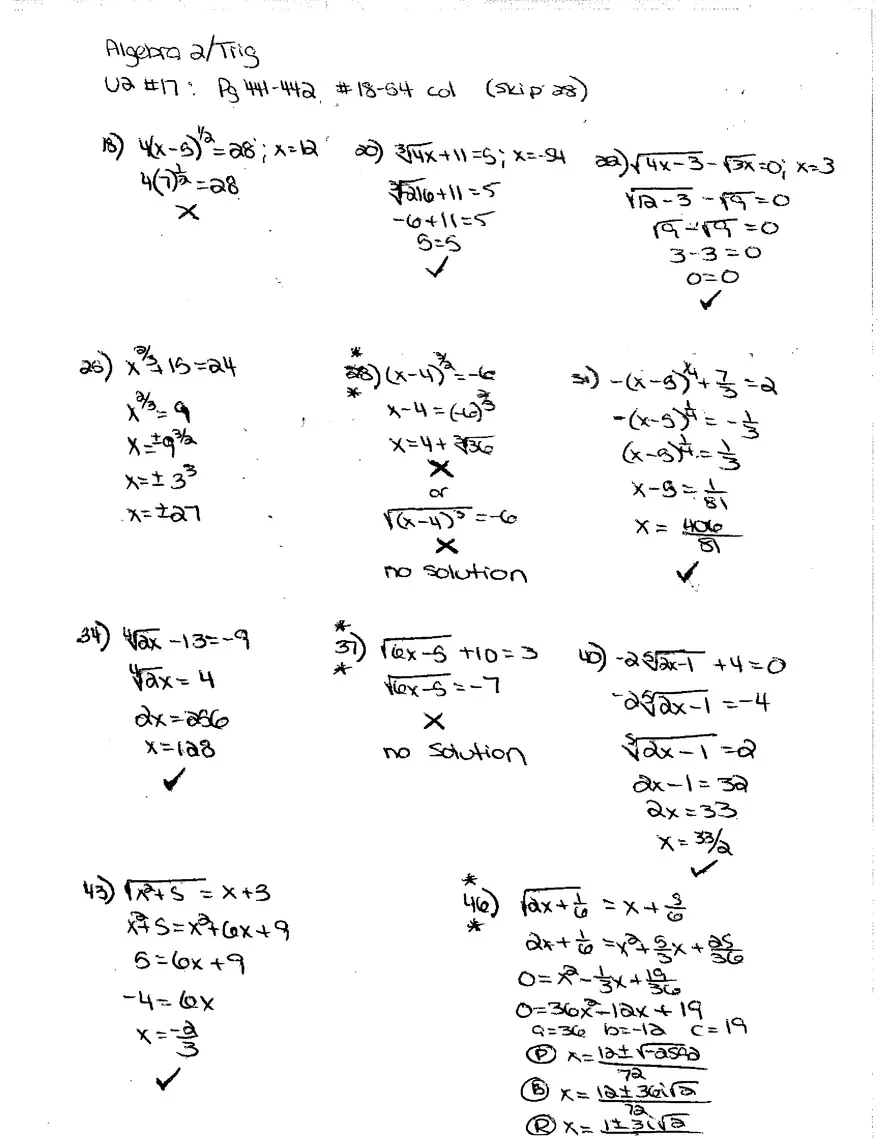 Algebra 2/Trig
U2 #17: Pg 441-442 #18-54 col (skip 28)
18) 4(x-5)^1/2=28; x=12
4(7)^1/2=28
X
20) ∛4x+11=5; x=-54
∛-216+11=5
-6+11=5
5=5
✓
22) √4x-3-√3x=0; x=3
√12-3-√9=0
√9-√9=0
3-3=0
0=0
✓
25) x^2/3+15=24
x^2/3=9
x=±9^3/2
x=±3^3
x=±27
*
28) (x-4)^3/2=-6
*
x-4=(-6)^2/3
x=4+∛36
X
or
√(x-4)^3=-6
X
no solution
31) -(x-5)^1/4+7/3=2
-(x-5)^1/4=-1/3
(x-5)^1/4=1/3
x-5=1/81
x=406/81
✓
34) ∜2x-13=-9
∜2x=4
2x=256
x=128
✓
*
37) √6x-5+10=3
*
√6x-5=-7
X
no solution
40) -2⁵√2x-1+4=0
-2⁵√2x-1=-4
⁵√2x-1=2
2x-1=32
2x=33
x=33/2
✓
43) √x^2+5=x+3
x^2+5=x^2+6x+9
5=6x+9
-4=6x
x=-2/3
✓
*
46) √2x+1/6=x+5/6
*
2x+1/6=x^2+5/3x+25/36
0=x^2-1/3x+19/36
0=36x^2-12x+19
a=36 b=-12 c=19
Ⓟ x=12±√-2592/72
Ⓑ x=12±36i√2/72
Ⓡ x=1±3i√2